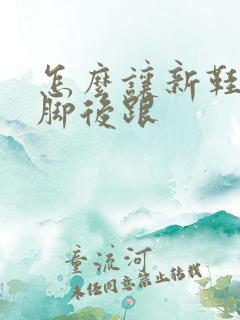 怎麼讓新鞋
腳後跟
童流河
未任同意禁止转载